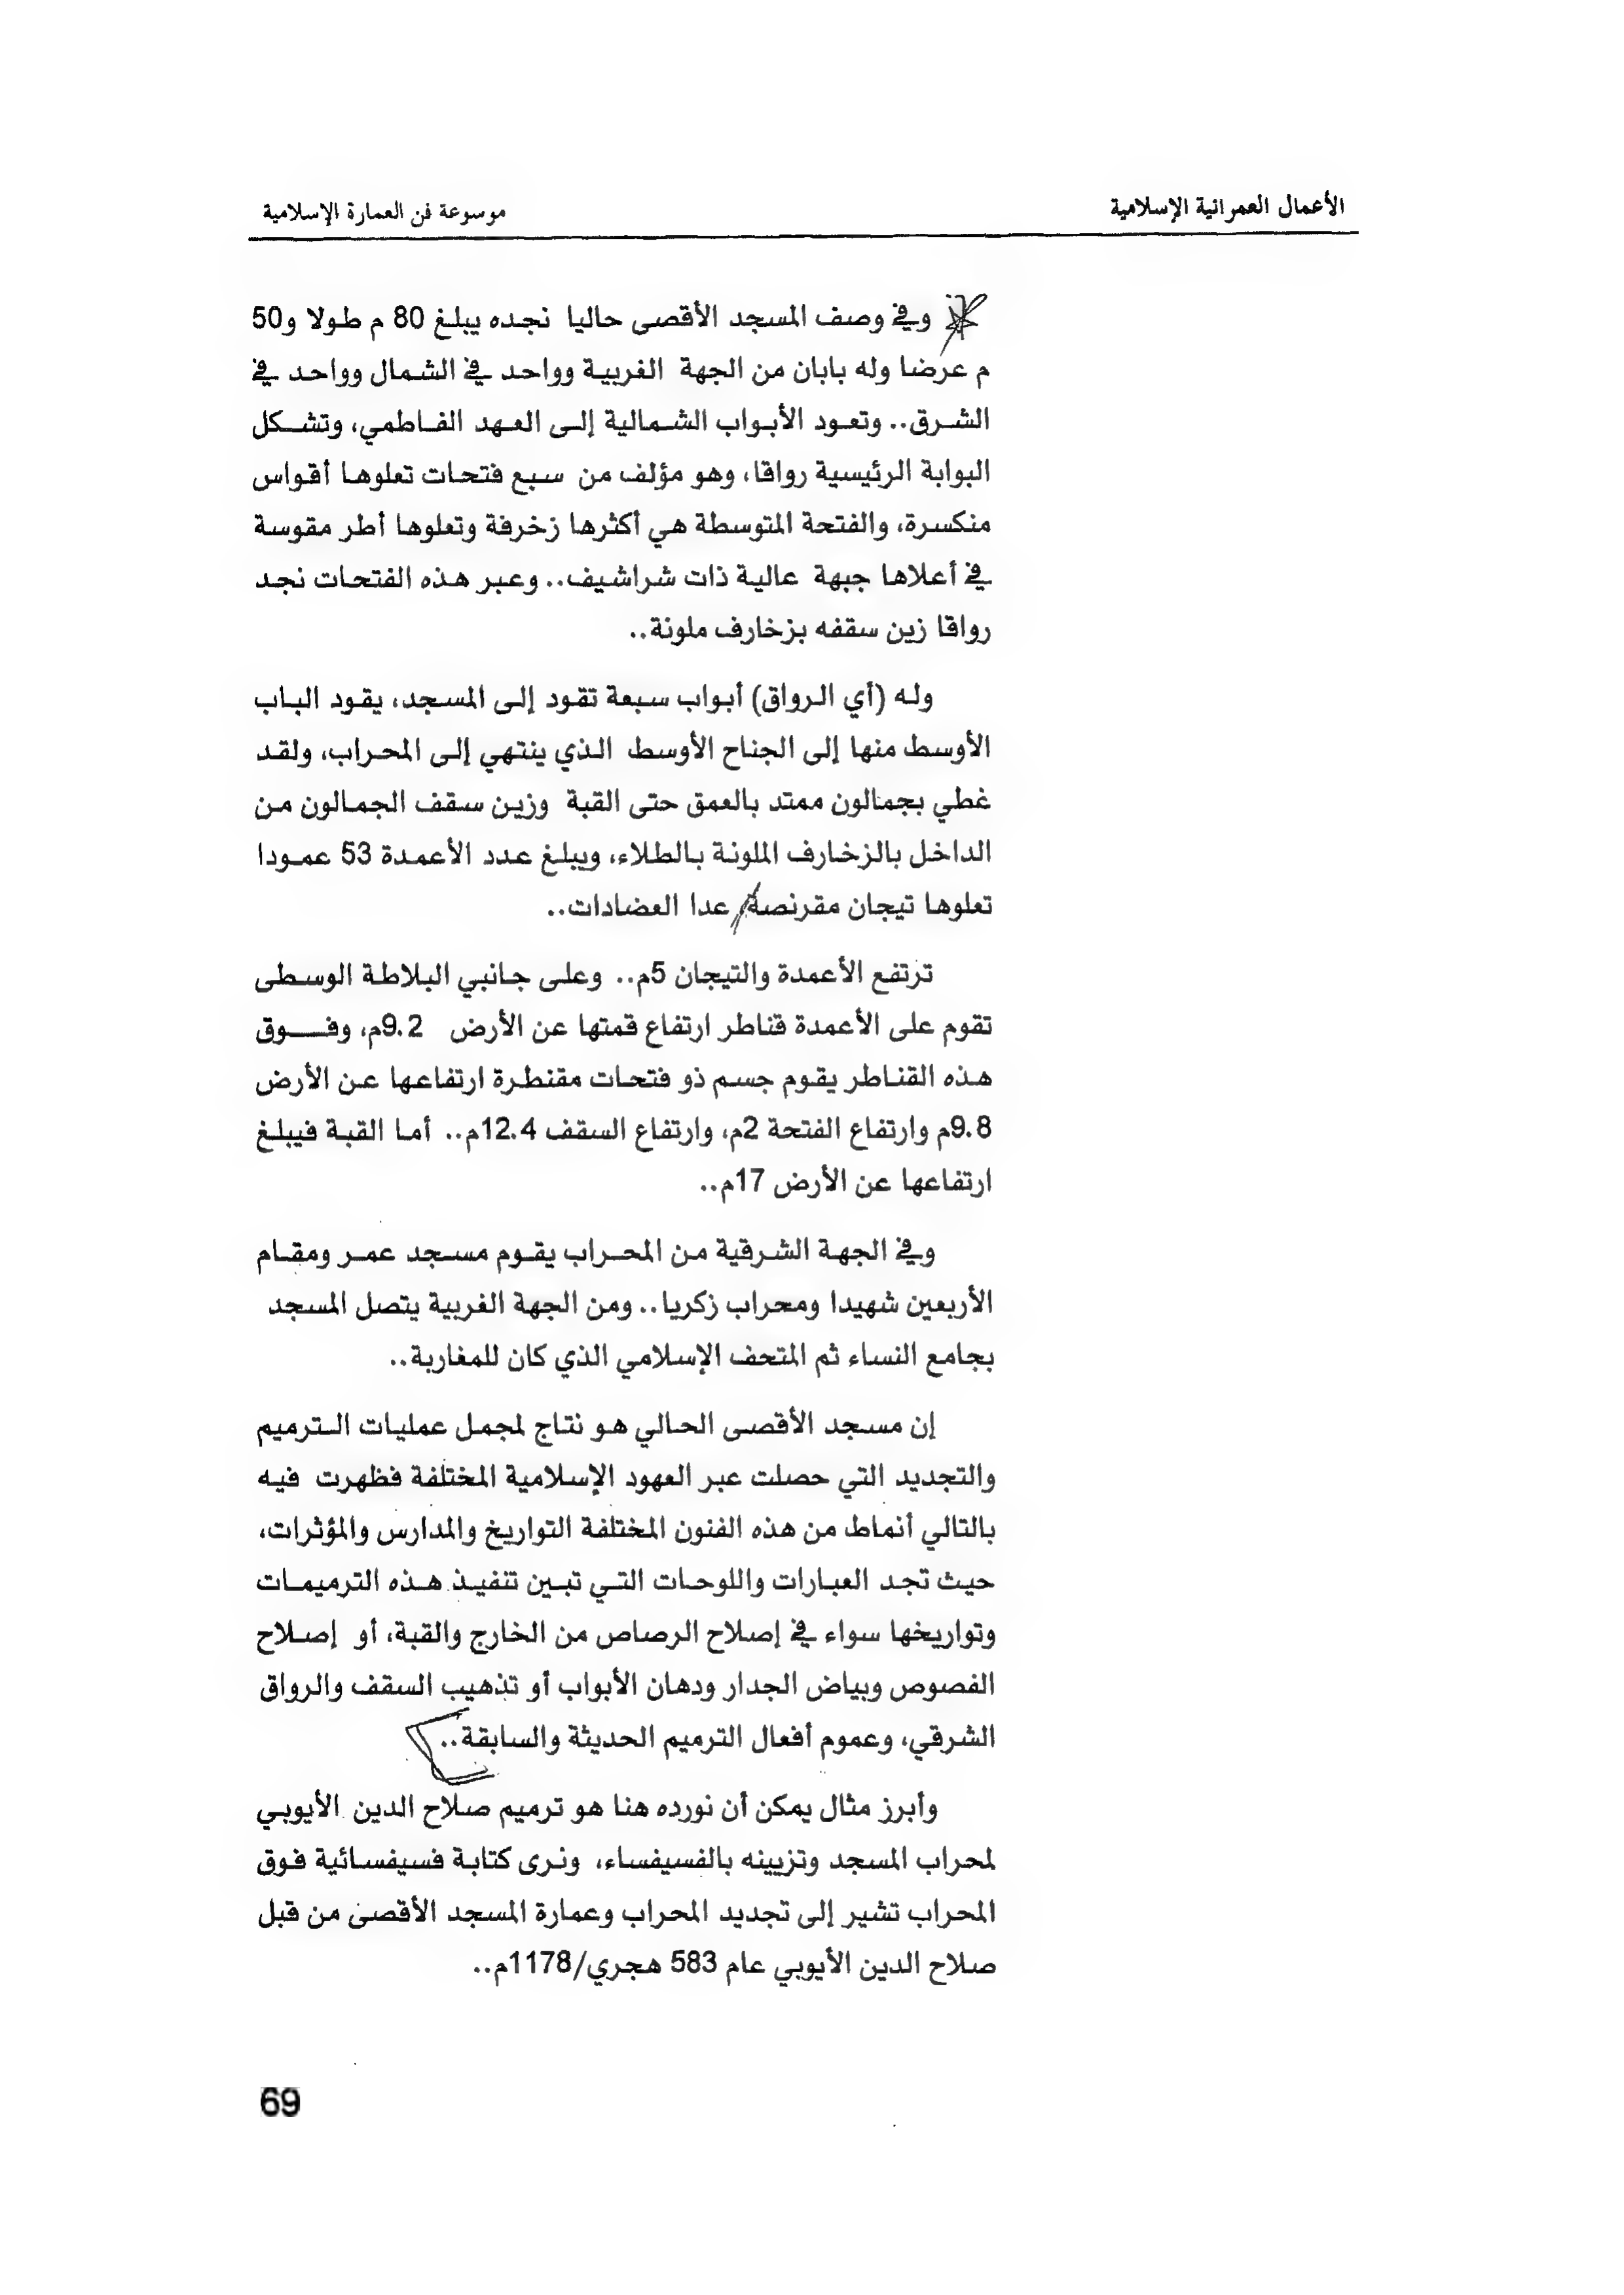 الأعمال العمرانية الإسلامية
موسوعة فن العمارة الإسلامية
وفي وصف المسجد الأقصى حاليا نجده يبلغ 80 م طولا و50
م عرضا وله بابان من الجهة الغربية وواحد في الشمال وواحد في
الشرق.. وتعود الأبواب الشمالية إلى العهد الفاطمي، وتشكل
البوابة الرئيسية رواقا، وهو مؤلف من سبع فتحات تعلوها أقواس
منكسرة، والفتحة المتوسطة هي أكثرها زخرفة وتعلوها أطر مقوسة
في أعلاها جبهة عالية ذات شراشيف.. وعبر هذه الفتحات نجد
رواقا زين سقفه بزخارف ملونة..
وله (أي الرواق) أبواب سبعة تقود إلى المسجد، يقود الباب
الأوسط منها إلى الجناح الأوسط الذي ينتهي إلى المحراب، ولقد
غطي بجمالون ممتد بالعمق حتى القبة وزين سقف الجمالون من
الداخل بالزخارف الملونة بالطلاء، ويبلغ عدد الأعمدة 53 عمودا
تعلوها تيجان مقرنصة عدا العضادات..
ترتفع الأعمدة والتيجان 5م.. وعلى جانبي البلاطة الوسطى
تقوم على الأعمدة قناطر ارتفاع قمتها عن الأرض 9.2م، وفوق
هذه القناطر يقوم جسم ذو فتحات مقنطرة ارتفاعها عن الأرض
9.8م وارتفاع الفتحة 2م، وارتفاع السقف 12.4م.. أما القبة فيبلغ
ارتفاعها عن الأرض 17م..
وفي الجهة الشرقية من المحراب يقوم مسجد عمر ومقام
الأربعين شهيدا ومحراب زكريا.. ومن الجهة الغربية يتصل المسجد
بجامع النساء ثم المتحف الإسلامي الذي كان للمغاربة..
إن مسجد الأقصى الحالي هو نتاج لمجمل عمليات الترميم
والتجديد التي حصلت عبر العهود الإسلامية المختلفة فظهرت فيه
بالتالي أنماط من هذه الفنون المختلفة التواريخ والمدارس والمؤثرات،
حيث تجد العبارات واللوحات التي تبين تنفيذ هذه الترميمات
وتواريخها سواء في إصلاح الرصاص من الخارج والقبة، أو إصلاح
الفصوص وبياض الجدار ودهان الأبواب أو تذهيب السقف والرواق
الشرقي، وعموم أفعال الترميم الحديثة والسابقة..
وأبرز مثال يمكن أن نورده هنا هو ترميم صلاح الدين الأيوبي
لمحراب المسجد وتزيينه بالفسيفساء، ونرى كتابة فسيفسائية فوق
المحراب تشير إلى تجديد المحراب وعمارة المسجد الأقصى من قبل
صلاح الدين الأيوبي عام 583 هجري/1178م..
69